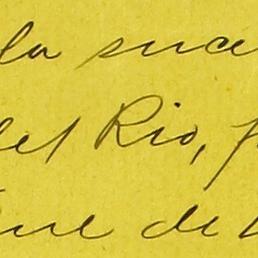 la suce
del Rio, f
ue de